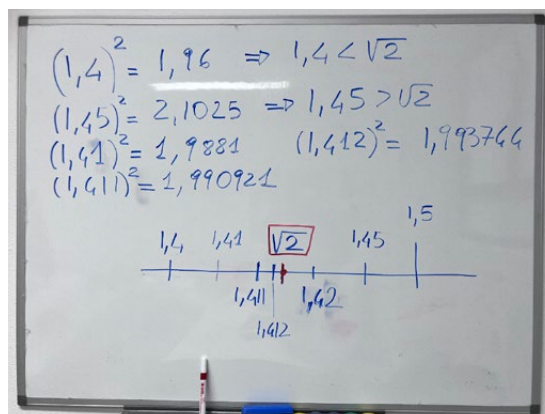 (1,4)² = 1,96 ⇒ 1,4 < √2
(1,45)² = 2,1025 ⇒ 1,45 > √2
(1,41)² = 1,9881 (1,412)² = 1,993744
(1,411)² = 1,990921
1,4 1,41 √2 1,45 1,5
1,411 1,412 1,42